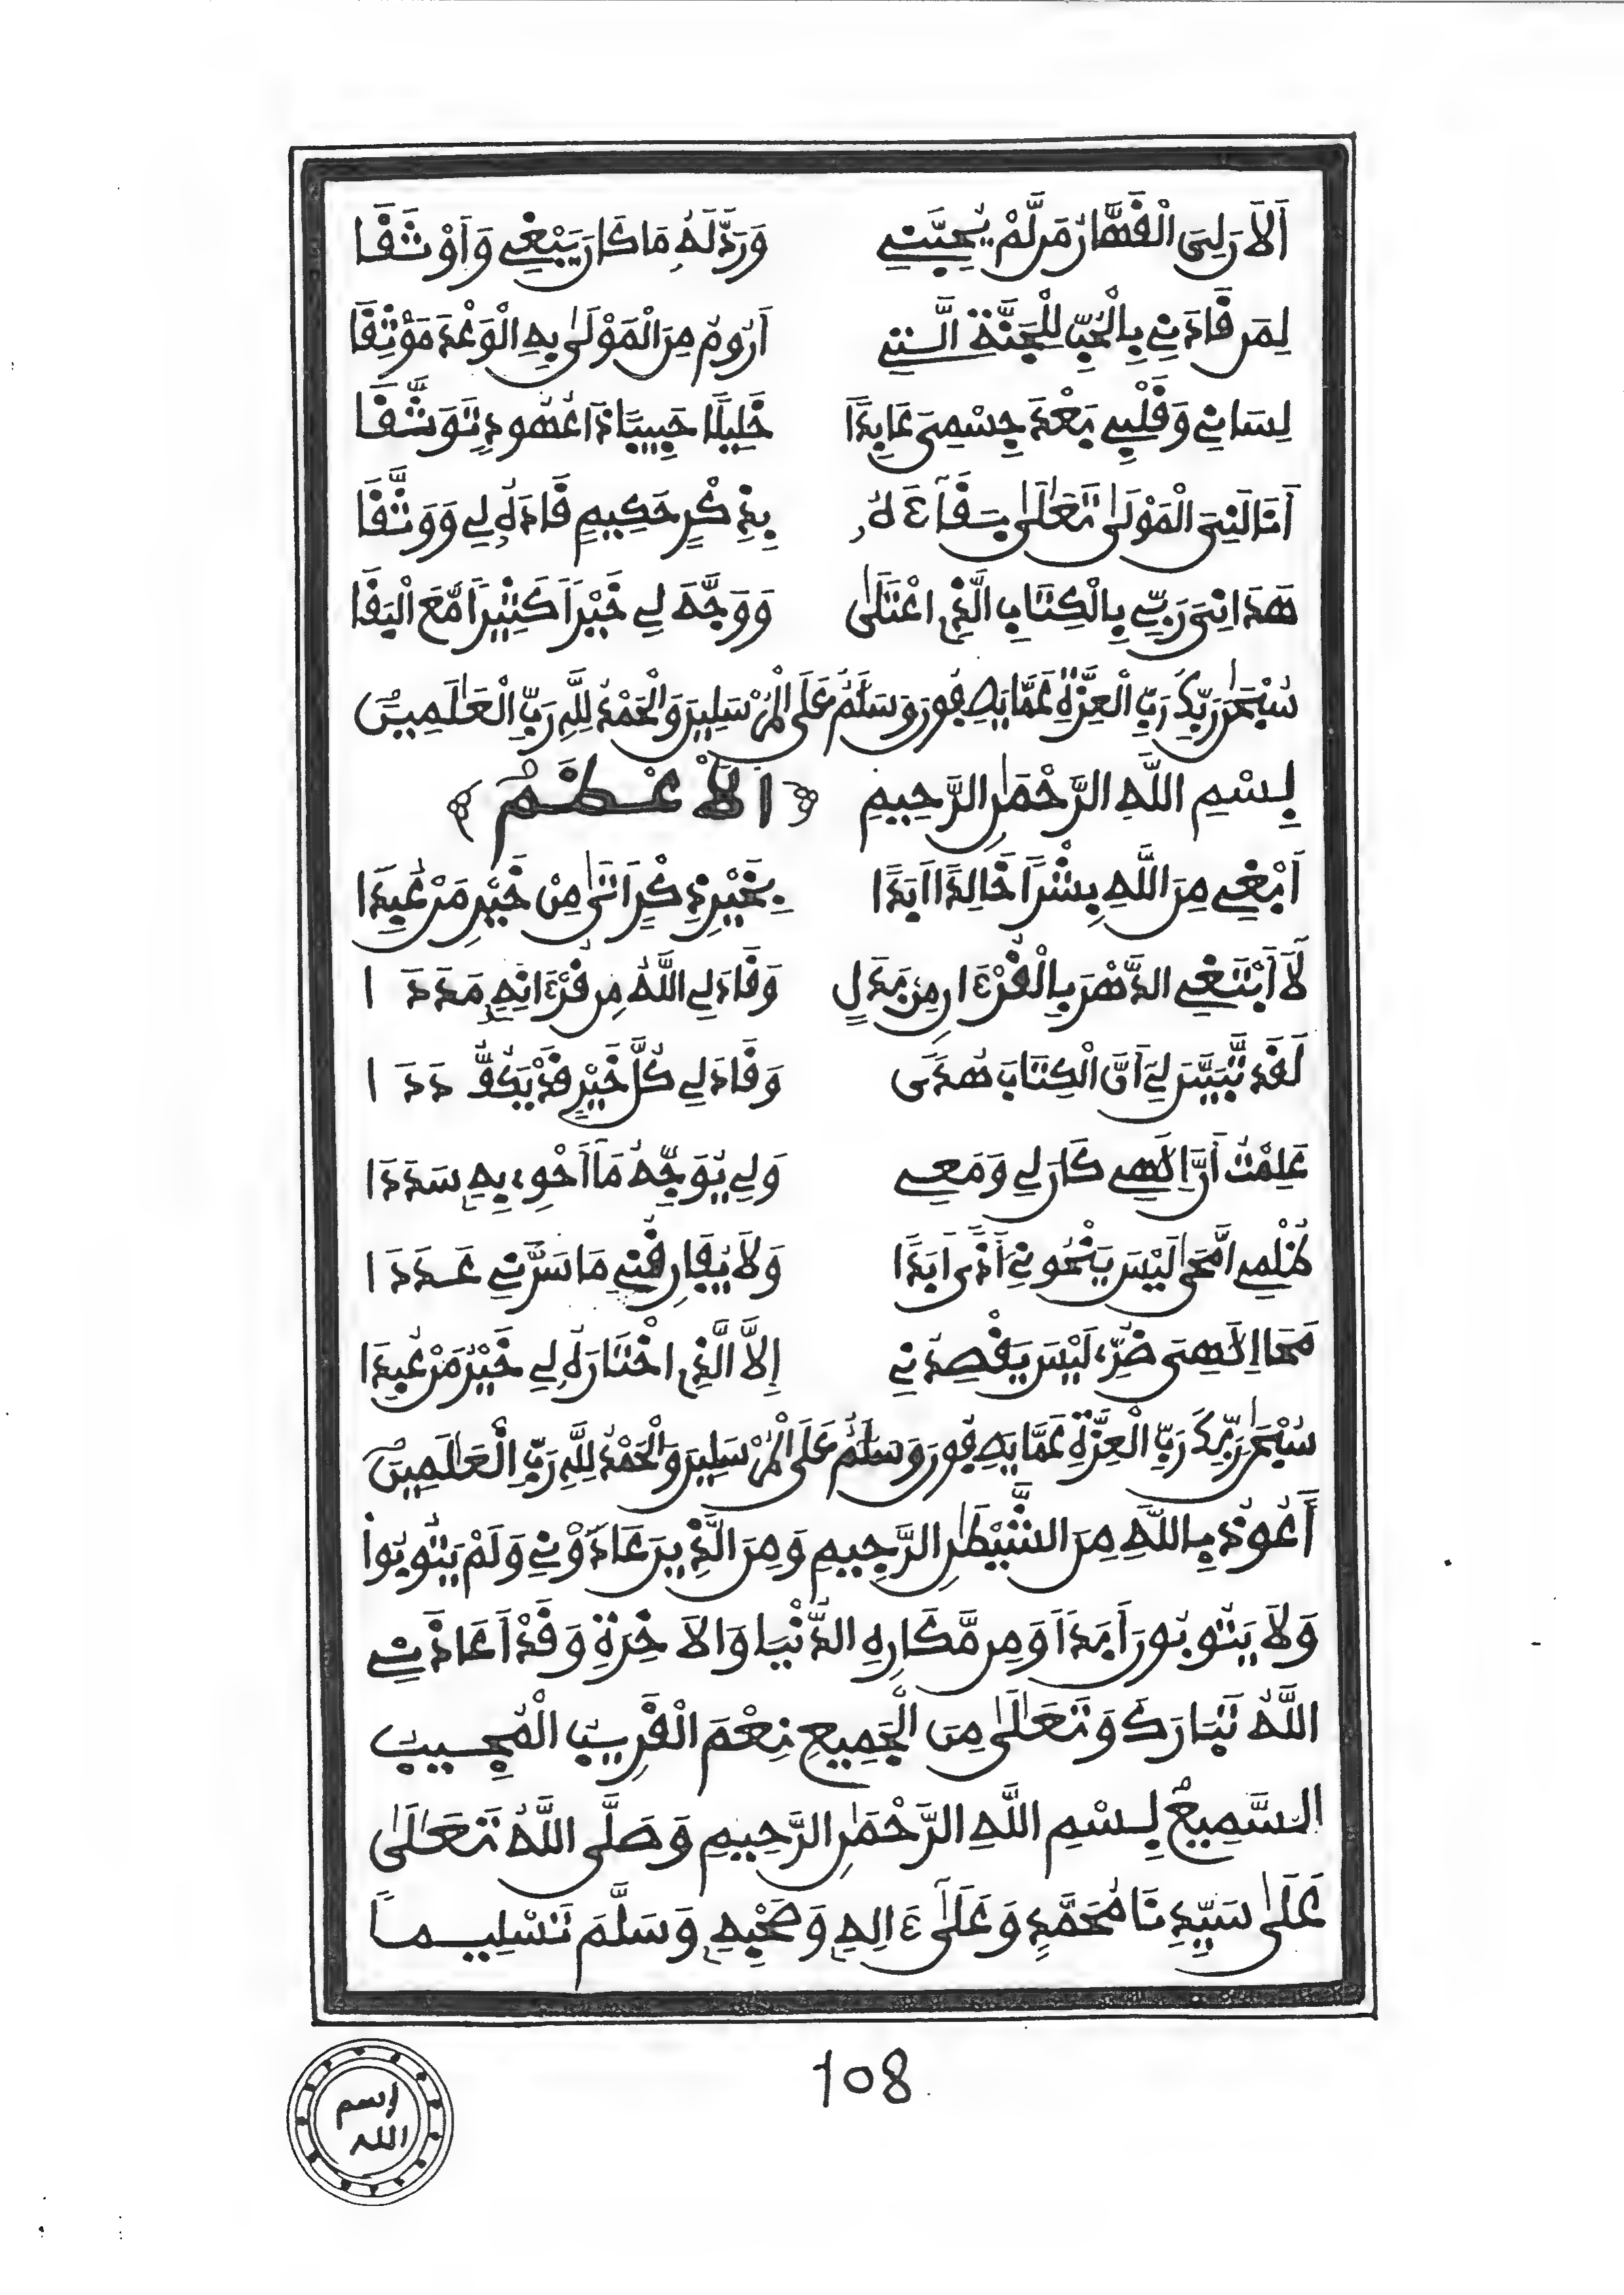 أَلَانَ لِيَ الْقَهَّارُ مَن لَّمْ يُحِبَّنِي وَرَدَّ لَهُ مَا كَانَ يَبْغِي وَأَوْثَقَا
لِمَن قَادَنِي بِالْحُبِّ لِلْجَنَّةِ الَّتِي أَرُومُ مِنَ الْمَوْلَىٰ بِهِ الْوَعْدَ مَوْثِقَا
لِسَانِي وَقَلْبِي بَعْدَ جِسْمِيَ عَابِدًا خَلِيلًا حَبِيبًا ذَا عُهُودٍ تَوَثَّقَا
أَنَالَنِيَ الْمَوْلَىٰ تَعَالَىٰ بَقَاءَهُ بِذِكْرٍ حَكِيمٍ قَادَهُ لِي وَوَثَّقَا
هَدَانِيَ رَبِّي بِالْكِتَابِ الَّذِي اعْتَلَىٰ وَوَجَّهَ لِي خَيْرًا كَثِيرًا مَّعَ الْبَقَا
سُبْحَٰنَ رَبِّكَ رَبِّ الْعِزَّةِ عَمَّا يَصِفُونَ وَسَلَٰمٌ عَلَى الْمُرْسَلِينَ وَالْحَمْدُ لِلَّهِ رَبِّ الْعَٰلَمِينَ
بِسْمِ اللَّهِ الرَّحْمَٰنِ الرَّحِيمِ ﴿الْأَعْظَمُ﴾
أَبْغِي مِنَ اللَّهِ بِشْرًا خَالِدًا أَبَدًا بِخَيْرِ ذِكْرٍ أَتَىٰ مِنْ خَيْرِ مَنْ عُبِدَا
لَا أَبْتَغِي الدَّهْرَ بِالْقُرْءَانِ مِن بَدَلٍ وَقَادَ لِي اللَّهُ مِن قُرْءَانِهِ مَدَدَا
لَقَد تَّبَيَّنَ لِي أَنَّ الْكِتَابَ هُدًى وَقَادَ لِي كُلَّ خَيْرٍ قَدْ يَكُفُّ دَدَا
عَلِمْتُ أَنَّ إِلَٰهِي كَانَ لِي وَمَعِي وَلِي يُوَجِّهُ مَا أَحْوِي بِهِ سَدَدَا
ظُلْمِي امَّحَىٰ لَيْسَ يَنْحُونِي أَذًى أَبَدًا وَلَا يُفَارِقُنِي مَا سَرَّنِي عَدَدَا
مَحَا إِلَٰهِيَ ضُرِّي لَيْسَ يَقْصِدُنِي إِلَّا الَّذِي اخْتَارَهُ لِي خَيْرُ مَنْ عُبِدَا
سُبْحَٰنَ رَبِّكَ رَبِّ الْعِزَّةِ عَمَّا يَصِفُونَ وَسَلَٰمٌ عَلَى الْمُرْسَلِينَ وَالْحَمْدُ لِلَّهِ رَبِّ الْعَٰلَمِينَ
أَعُوذُ بِاللَّهِ مِنَ الشَّيْطَٰنِ الرَّجِيمِ وَمِنَ الَّذِينَ عَادَوْنِي وَلَمْ يَتُوبُوا
وَلَا يَتُوبُونَ أَبَدًا وَمِن مَّكَارِهِ الدُّنْيَا وَالْآخِرَةِ وَقَدْ أَعَاذَنِي
اللَّهُ تَبَارَكَ وَتَعَالَىٰ مِنَ الْجَمِيعِ نِعْمَ الْقَرِيبُ الْمُجِيبُ
السَّمِيعُ بِسْمِ اللَّهِ الرَّحْمَٰنِ الرَّحِيمِ وَصَلَّى اللَّهُ تَعَالَىٰ
عَلَىٰ سَيِّدِنَا مُحَمَّدٍ وَعَلَىٰ ءَالِهِ وَصَحْبِهِ وَسَلَّمَ تَسْلِيمًا
108
إسم
الله